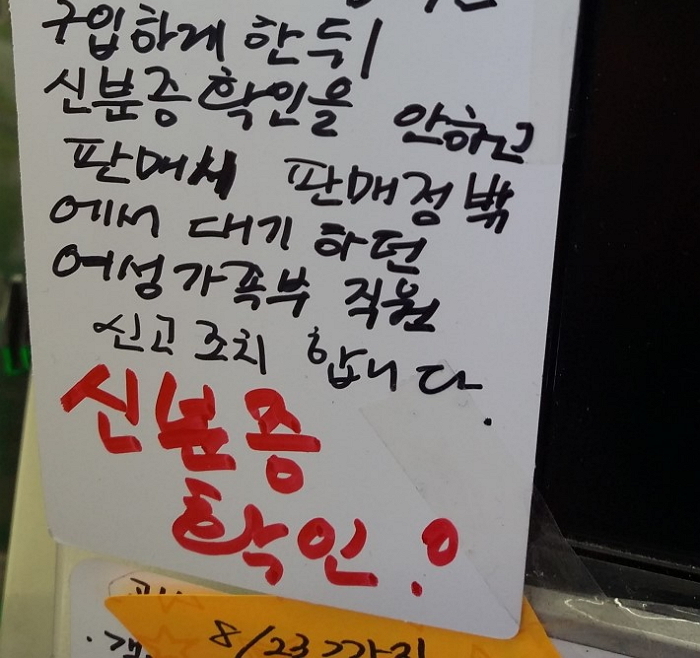 구입하게 한 뒤
신분증 확인을 안하고
판매시 판매점 밖
에서 대기 하던
여성가족부 직원
신고조치 합니다.
신분증
확인!
8/23 까지